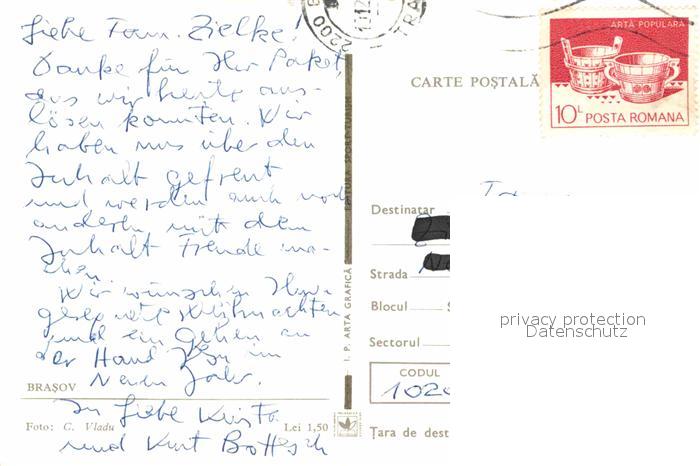 Liebe Fam. Zielke!
Danke für Ihr Paket,
das wir heute aus-
lösen konnten. Wir
haben uns über den
Inhalt gefreut
und werden auch noch
anderen mit dem
Inhalt Freude ma-
chen.
Wir wünschen Ihnen
gesegnete Weihnachten
und ein Gehen an
der Hand im
Neuen Jahr.
In Liebe
und Kurt Bottesch
BRAȘOV
Foto: C. Vladu
Lei 1,50
I. P. ARTA GRAFICĂ
2200
CARTE POȘTALĂ
ARTĂ POPULARĂ
10L POSTA ROMANA
Destinatar
Strada
Blocul
Sectorul
CODUL
102
Țara de dest
privacy protection
Datenschutz